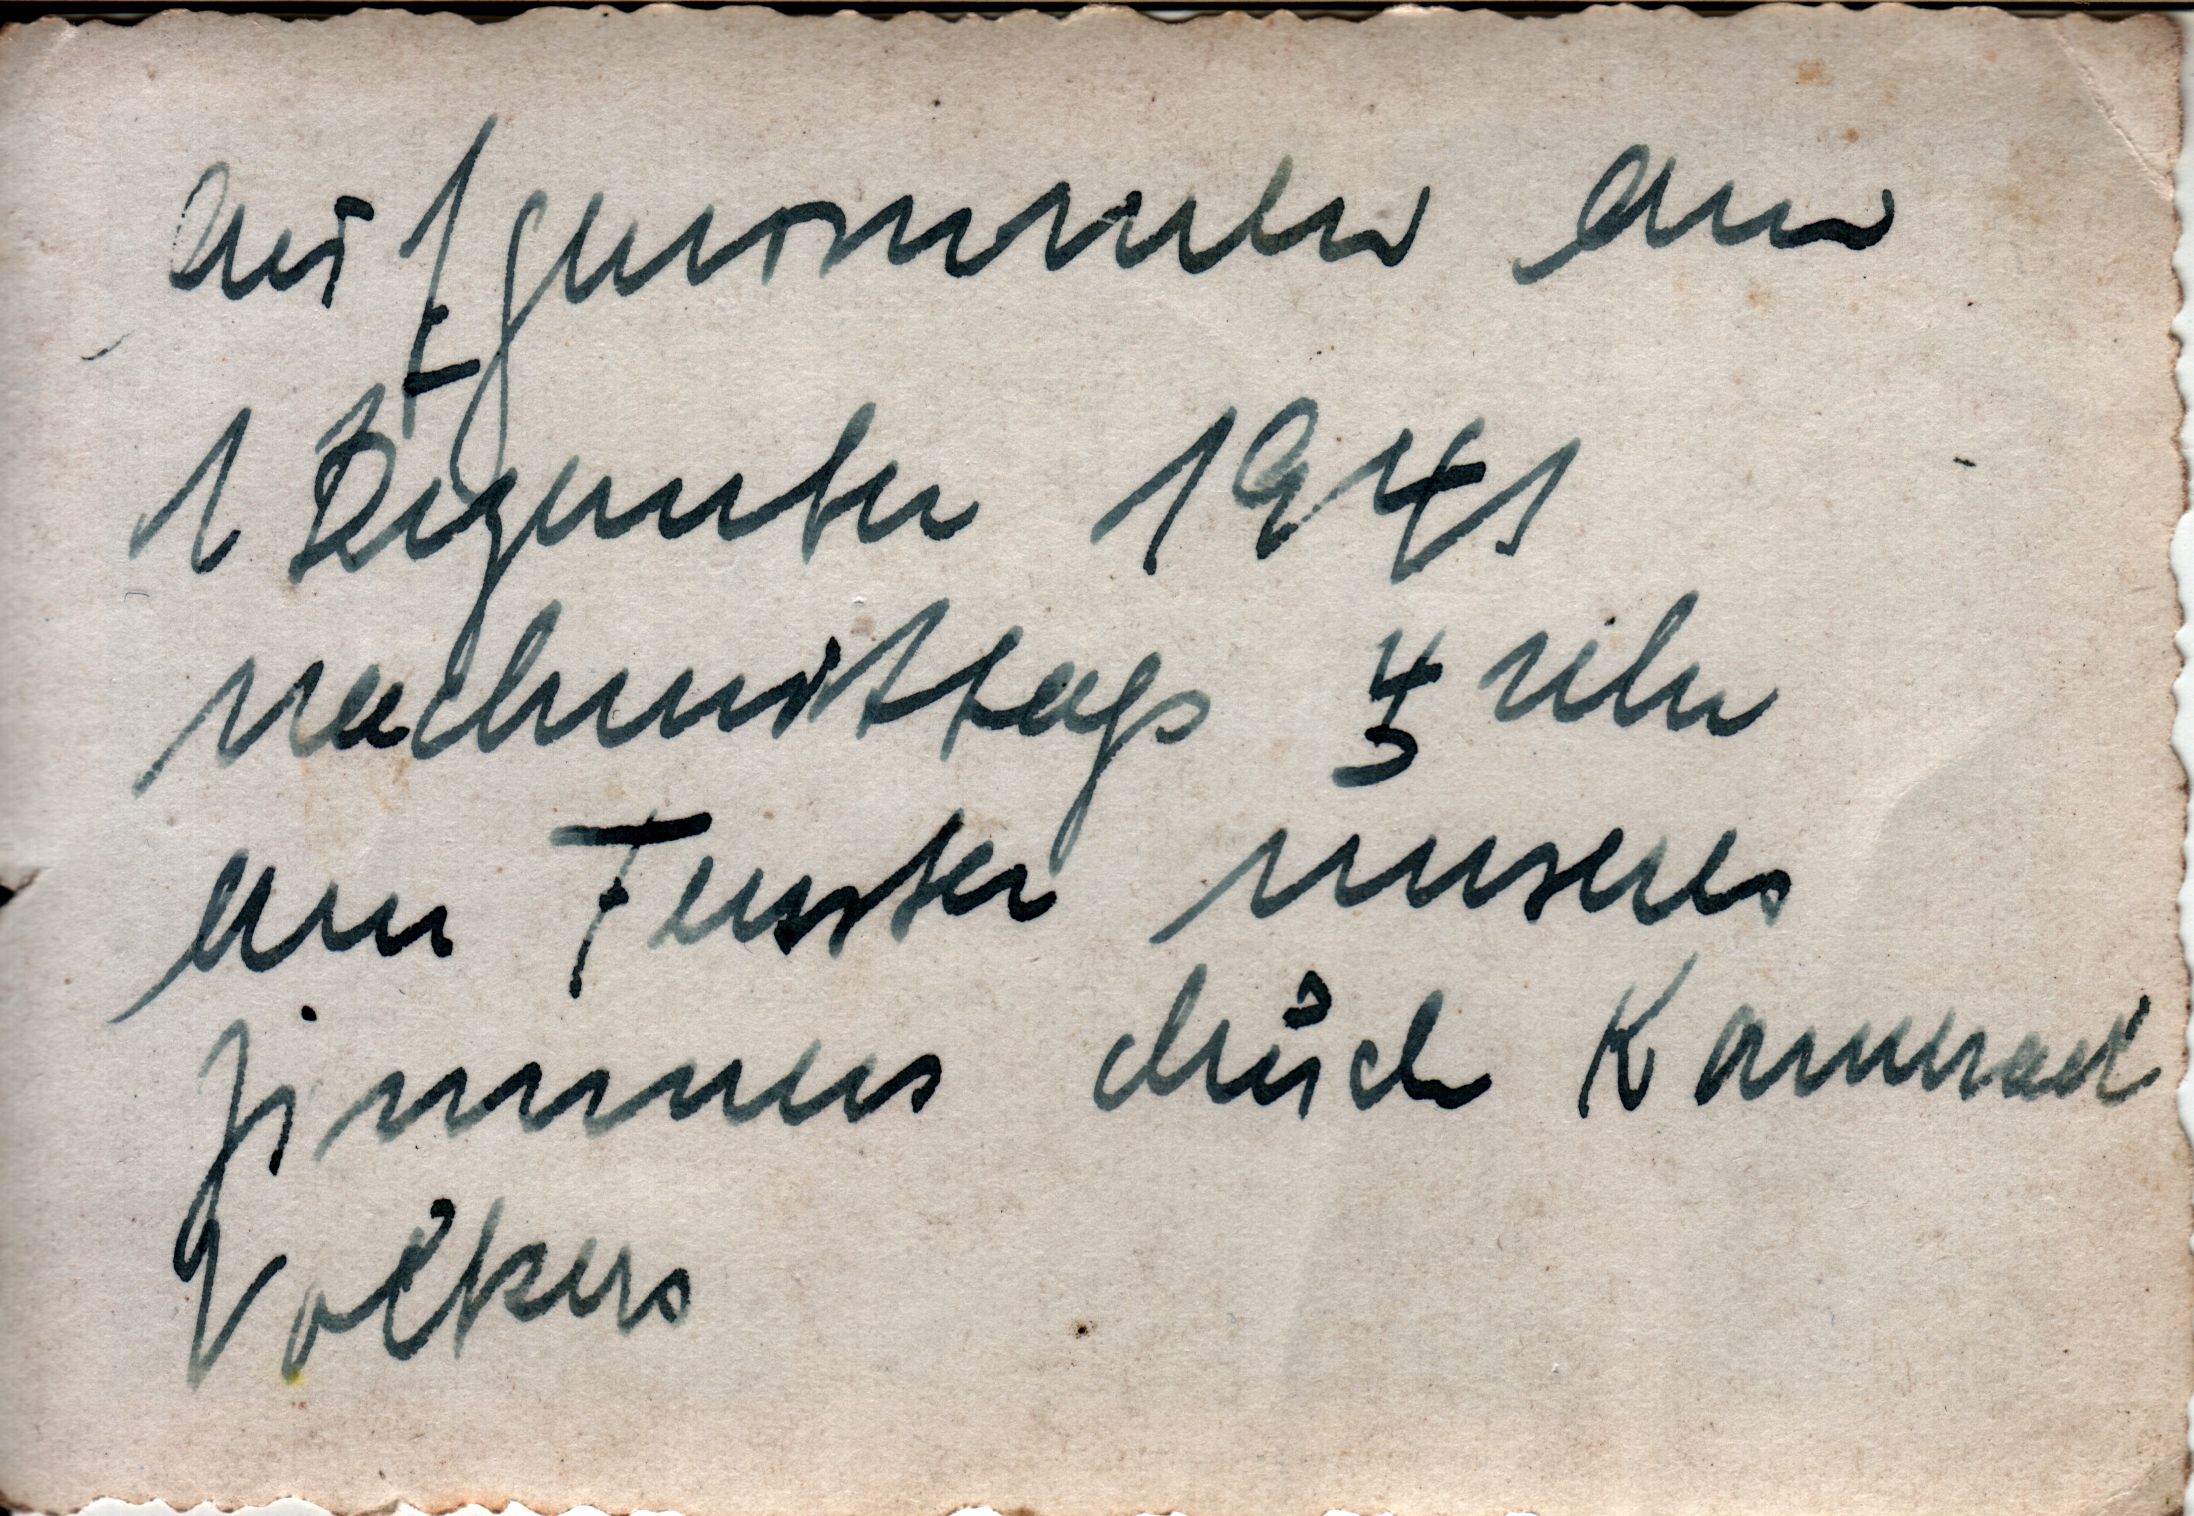 Aufgenommen am
1 Dezember 1941
nachmittags 4 Uhr
am Fenster unseres
Zimmers durch Kamerad
Volkers